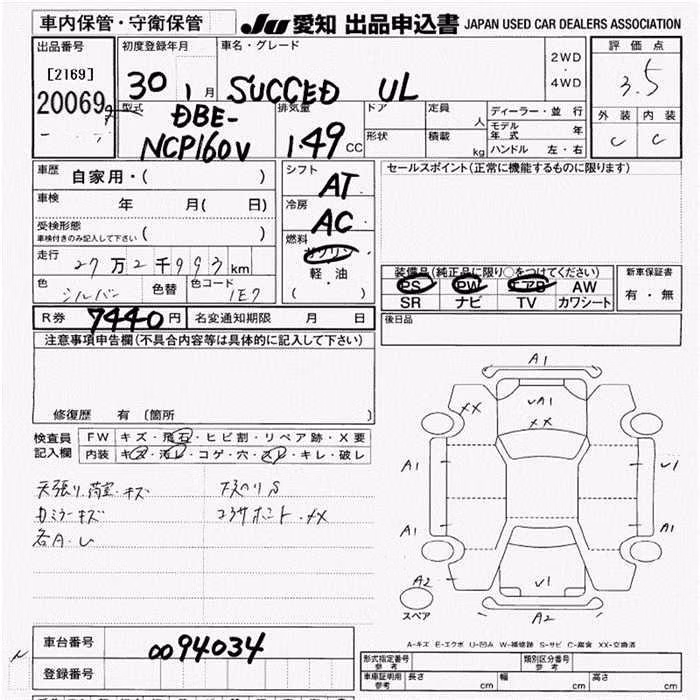 車内保管・守衛保管
JU 愛知 出品申込書 JAPAN USED CAR DEALERS ASSOCIATION
出品番号
[2169]
20069
初度登録年月
30 1 月
車名・グレード
SUCCED UL
2WD
・
4WD
評価点
3.5
外装 内装
C C
型式
DBE-
NCP160V
排気量
1.49 CC
ドア
形状
定員 人
積載 kg
ディーラー・並 行
モデル年式 年
ハンドル 左・右
車歴 自家用・( )
車検 年 月( 日)
受検形態
車検付きのみ記入して下さい ( )
走行 27万2千993km
色 シルバー 色替 色コード 1E7
シフト AT
冷房 AC
燃料 ガソリン
軽・油
( )
セールスポイント(正常に機能するものに限ります)
装備品(純正品に限り○をつけてください)
PS PW エアB AW
SR ナビ TV カワシート
新車保証書
有・無
後日品
R券 7440円 名変通知期限 月 日
注意事項申告欄(不具合内容等は具体的に記入して下さい)
修復歴 有〔箇所 〕
検査員記入欄
FW キズ・飛石・ヒビ割・リペア跡・X要
内装 キズ・汚レ・コゲ・穴・スレ・キレ・破レ
天張り、荷室・キズ
カミラーキズ
各A・U
A1
XX
UA1
XX
A1
U1
A1
A1
A2
U1
A2
スペア
A-キズ E-エクボ U-凹み W-補修跡 S-サビ C-腐食 XX-交換済
車台番号 0094034
登録番号
形式指定番号
参考
類別区分番号
参考
車庫証明用
参考
長さ cm 幅 cm 高さ cm